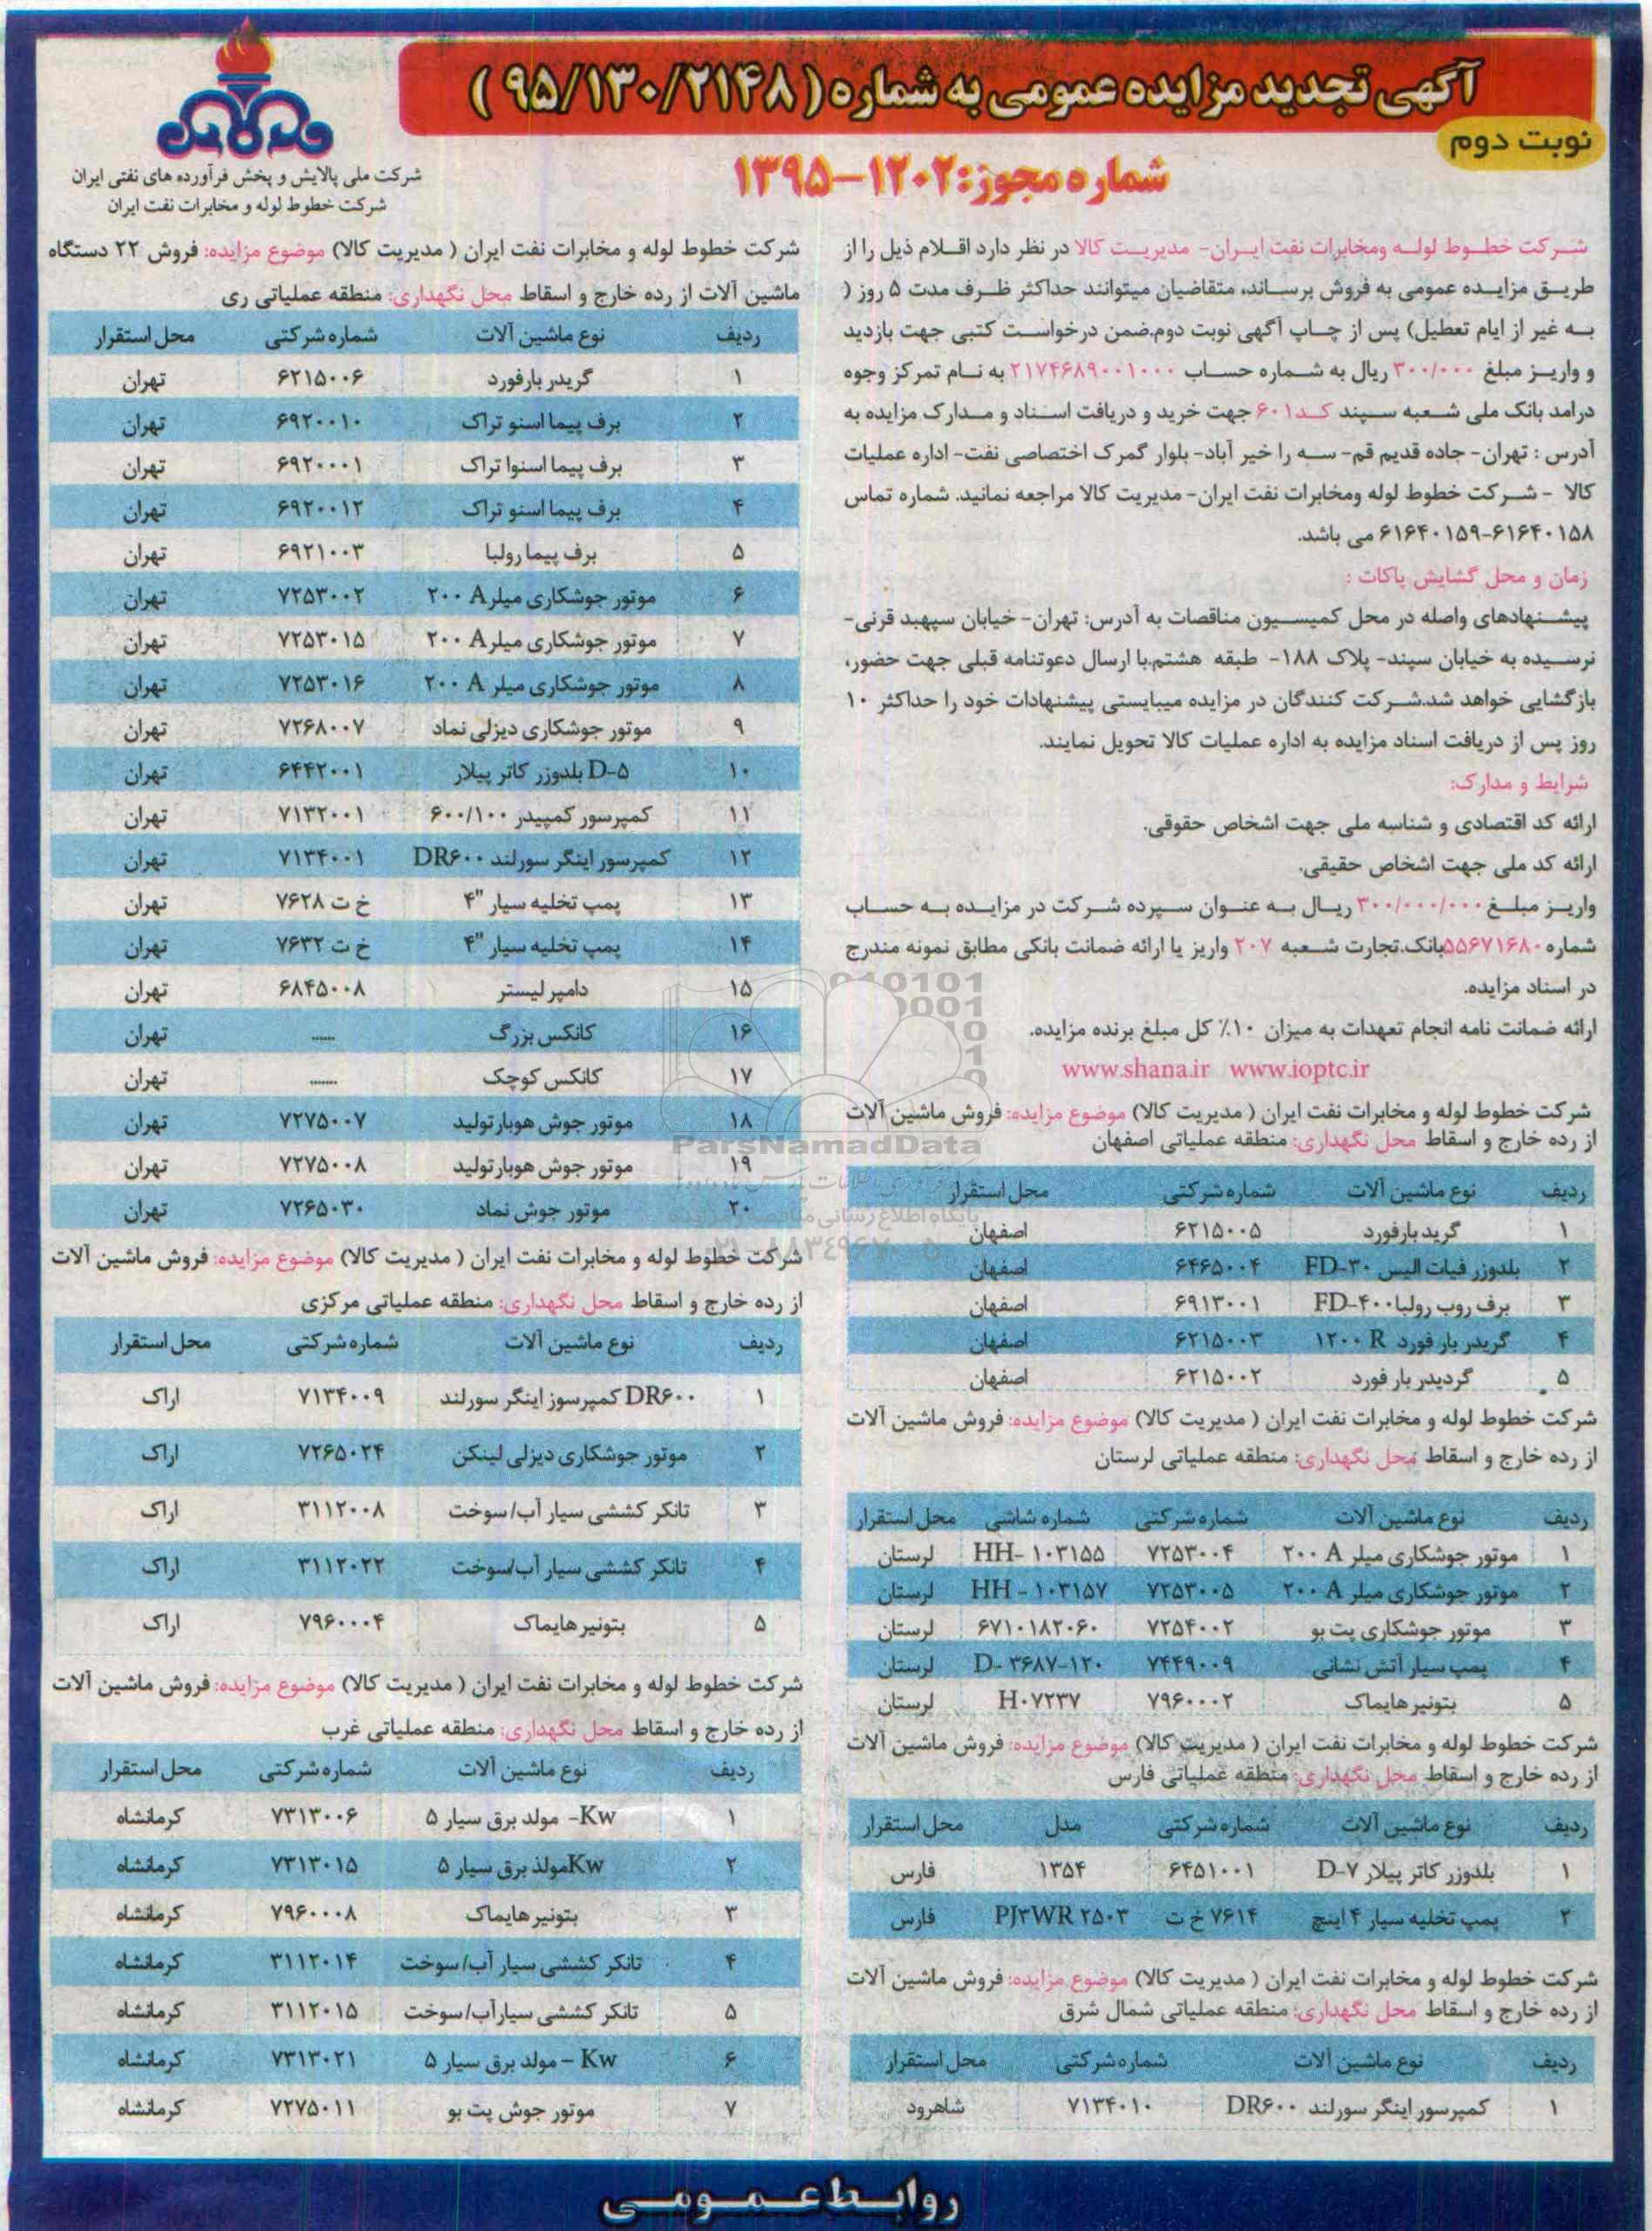 آگهی تجدید مزایده عمومی به شماره ( ۹۵/۱۳۰/۲۱۴۸ )
نوبت دوم
شماره مجوز:۱۲۰۲-۱۳۹۵
شرکت ملی پالایش و پخش فرآورده های نفتی ایران
شرکت خطوط لوله و مخابرات نفت ایران
شرکت خطوط لوله ومخابرات نفت ایران- مدیریت کالا در نظر دارد اقلام ذیل را از
طریق مزایده عمومی به فروش برساند، متقاضیان میتوانند حداکثر ظرف مدت ۵ روز (
به غیر از ایام تعطیل) پس از چاپ آگهی نوبت دوم،ضمن درخواست کتبی جهت بازدید
و واریز مبلغ ۳۰۰/۰۰۰ ریال به شماره حساب ۲۱۷۴۶۸۹۰۰۱۰۰۰ به نام تمرکز وجوه
درامد بانک ملی شعبه سپند کد۶۰۱ جهت خرید و دریافت اسناد و مدارک مزایده به
آدرس : تهران- جاده قدیم قم- سه را خیر آباد- بلوار گمرک اختصاصی نفت- اداره عملیات
کالا - شرکت خطوط لوله ومخابرات نفت ایران- مدیریت کالا مراجعه نمانید. شماره تماس
۶۱۶۴۰۱۵۸-۶۱۶۴۰۱۵۹ می باشد.
زمان و محل گشایش پاکات :
پیشنهادهای واصله در محل کمیسیون مناقصات به آدرس: تهران- خیابان سپهبد قرنی-
نرسیده به خیابان سپند- پلاک ۱۸۸- طبقه هشتم،با ارسال دعوتنامه قبلی جهت حضور،
بازگشایی خواهد شد.شرکت کنندگان در مزایده میبایستی پیشنهادات خود را حداکثر ۱۰
روز پس از دریافت اسناد مزایده به اداره عملیات کالا تحویل نمایند.
شرایط و مدارک:
ارائه کد اقتصادی و شناسه ملی جهت اشخاص حقوقی.
ارائه کد ملی جهت اشخاص حقیقی.
واریز مبلغ ۳۰۰/۰۰۰/۰۰۰ ریال به عنوان سپرده شرکت در مزایده به حساب
شماره ۵۵۶۷۱۶۸۰بانک.تجارت شعبه ۲۰۷ واریز یا ارائه ضمانت بانکی مطابق نمونه مندرج
در اسناد مزایده.
ارائه ضمانت نامه انجام تعهدات به میزان ۱۰٪ کل مبلغ برنده مزایده.
www.shana.ir www.ioptc.ir
شرکت خطوط لوله و مخابرات نفت ایران ( مدیریت کالا) موضوع مزایده: فروش ماشین آلات
از رده خارج و اسقاط محل نگهداری: منطقه عملیاتی اصفهان
ردیف نوع ماشین آلات شماره شرکتی محل استقرار
۱ گرید بارفورد ۶۲۱۵۰۰۵ اصفهان
۲ بلدوزر فیات الیس FD-۳۰ ۶۴۶۵۰۰۴ اصفهان
۳ برف روب رولبا FD-۴۰۰ ۶۹۱۳۰۰۱ اصفهان
۴ گریدر بار فورد ۱۲۰۰ R ۶۲۱۵۰۰۳ اصفهان
۵ گردیدر بار فورد ۶۲۱۵۰۰۲ اصفهان
شرکت خطوط لوله و مخابرات نفت ایران ( مدیریت کالا) موضوع مزایده: فروش ماشین آلات
از رده خارج و اسقاط محل نگهداری: منطقه عملیاتی لرستان
ردیف نوع ماشین آلات شماره شرکتی شماره شاشی محل استقرار
۱ موتور جوشکاری میلر ۲۰۰ A ۷۲۵۳۰۰۴ HH- ۱۰۳۱۵۵ لرستان
۲ موتور جوشکاری میلر ۲۰۰ A ۷۲۵۳۰۰۵ HH - ۱۰۳۱۵۷ لرستان
۳ موتور جوشکاری پت بو ۷۲۵۴۰۰۲ ۶۷۱۰۱۸۲۰۶۰ لرستان
۴ پمپ سیار آتش نشانی ۷۴۴۹۰۰۹ D- ۳۶۸۷-۱۲۰ لرستان
۵ بتونیر هایماک ۷۹۶۰۰۰۲ H۰۷۲۳۷ لرستان
شرکت خطوط لوله و مخابرات نفت ایران ( مدیریت کالا) موضوع مزایده: فروش ماشین آلات
از رده خارج و اسقاط محل نگهداری: منطقه عملیاتی فارس
ردیف نوع ماشین آلات شماره شرکتی مدل محل استقرار
۱ بلدوزر کاتر پیلار D-۷ ۶۴۵۱۰۰۱ ۱۳۵۴ فارس
۲ پمپ تخلیه سیار ۴ اینچ ۷۶۱۴ خ ت PJ۳WR ۲۵۰۳ فارس
شرکت خطوط لوله و مخابرات نفت ایران ( مدیریت کالا) موضوع مزایده: فروش ماشین آلات
از رده خارج و اسقاط محل نگهداری: منطقه عملیاتی شمال شرق
ردیف نوع ماشین آلات شماره شرکتی محل استقرار
۱ کمپرسور اینگر سورلند DR۶۰۰ ۷۱۳۴۰۱۰ شاهرود
شرکت خطوط لوله و مخابرات نفت ایران ( مدیریت کالا) موضوع مزایده: فروش ۲۲ دستگاه
ماشین آلات از رده خارج و اسقاط محل نگهداری: منطقه عملیاتی ری
ردیف نوع ماشین آلات شماره شرکتی محل استقرار
۱ گریدر بارفورد ۶۲۱۵۰۰۶ تهران
۲ برف پیما اسنو تراک ۶۹۲۰۰۱۰ تهران
۳ برف پیما اسنوا تراک ۶۹۲۰۰۰۱ تهران
۴ برف پیما اسنو تراک ۶۹۲۰۰۱۲ تهران
۵ برف پیما رولبا ۶۹۲۱۰۰۳ تهران
۶ موتور جوشکاری میلر۲۰۰ A ۷۲۵۳۰۰۲ تهران
۷ موتور جوشکاری میلر۲۰۰ A ۷۲۵۳۰۱۵ تهران
۸ موتور جوشکاری میلر ۲۰۰ A ۷۲۵۳۰۱۶ تهران
۹ موتور جوشکاری دیزلی نماد ۷۲۶۸۰۰۷ تهران
۱۰ D-۵ بلدوزر کاتر پیلار ۶۴۴۲۰۰۱ تهران
۱۱ کمپرسور کمپیدر ۶۰۰/۱۰۰ ۷۱۳۲۰۰۱ تهران
۱۲ کمپرسور اینگر سورلند DR۶۰۰ ۷۱۳۴۰۰۱ تهران
۱۳ پمپ تخلیه سیار "۴ خ ت ۷۶۲۸ تهران
۱۴ پمپ تخلیه سیار "۴ خ ت ۷۶۳۲ تهران
۱۵ دامپر لیستر ۶۸۴۵۰۰۸ تهران
۱۶ کانکس بزرگ ...... تهران
۱۷ کانکس کوچک ....... تهران
۱۸ موتور جوش هوبار تولید ۷۲۷۵۰۰۷ تهران
۱۹ موتور جوش هوبار تولید ۷۲۷۵۰۰۸ تهران
۲۰ موتور جوش نماد ۷۲۶۵۰۳۰ تهران
شرکت خطوط لوله و مخابرات نفت ایران ( مدیریت کالا) موضوع مزایده: فروش ماشین آلات
از رده خارج و اسقاط محل نگهداری: منطقه عملیاتی مرکزی
ردیف نوع ماشین آلات شماره شرکتی محل استقرار
۱ DR۶۰۰ کمپرسوز اینگر سورلند ۷۱۳۴۰۰۹ اراک
۲ موتور جوشکاری دیزلی لینکن ۷۲۶۵۰۲۴ اراک
۳ تانکر کششی سیار آب/سوخت ۳۱۱۲۰۰۸ اراک
۴ تانکر کششی سیار آب/سوخت ۳۱۱۲۰۲۲ اراک
۵ بتونیر هایماک ۷۹۶۰۰۰۴ اراک
شرکت خطوط لوله و مخابرات نفت ایران ( مدیریت کالا) موضوع مزایده: فروش ماشین آلات
از رده خارج و اسقاط محل نگهداری: منطقه عملیاتی غرب
ردیف نوع ماشین آلات شماره شرکتی محل استقرار
۱ Kw- مولد برق سیار ۵ ۷۳۱۳۰۰۶ کرمانشاه
۲ Kwمولذ برق سیار ۵ ۷۳۱۳۰۱۵ کرمانشاه
۳ بتونیر هایماک ۷۹۶۰۰۰۸ کرمانشاه
۴ تانکر کششی سیار آب/سوخت ۳۱۱۲۰۱۴ کرمانشاه
۵ تانکر کششی سیارآب/سوخت ۳۱۱۲۰۱۵ کرمانشاه
۶ Kw – مولد برق سیار ۵ ۷۳۱۳۰۲۱ کرمانشاه
۷ موتور جوش پت بو ۷۲۷۵۰۱۱ کرمانشاه
ParsNamadData
پایگاه اطلاع رسانی مناقصه
روابط عمومی